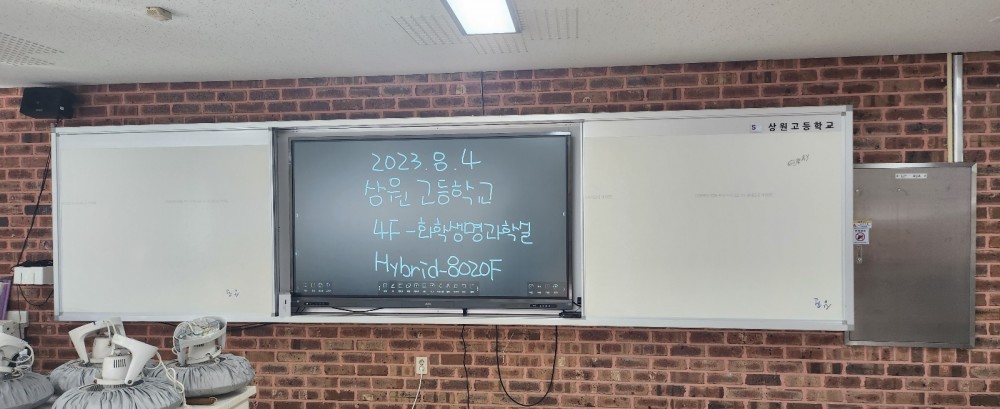 S 상원고등학교
2023.8.4
상원고등학교
4F-화학생명과학실
Hybrid-8020F